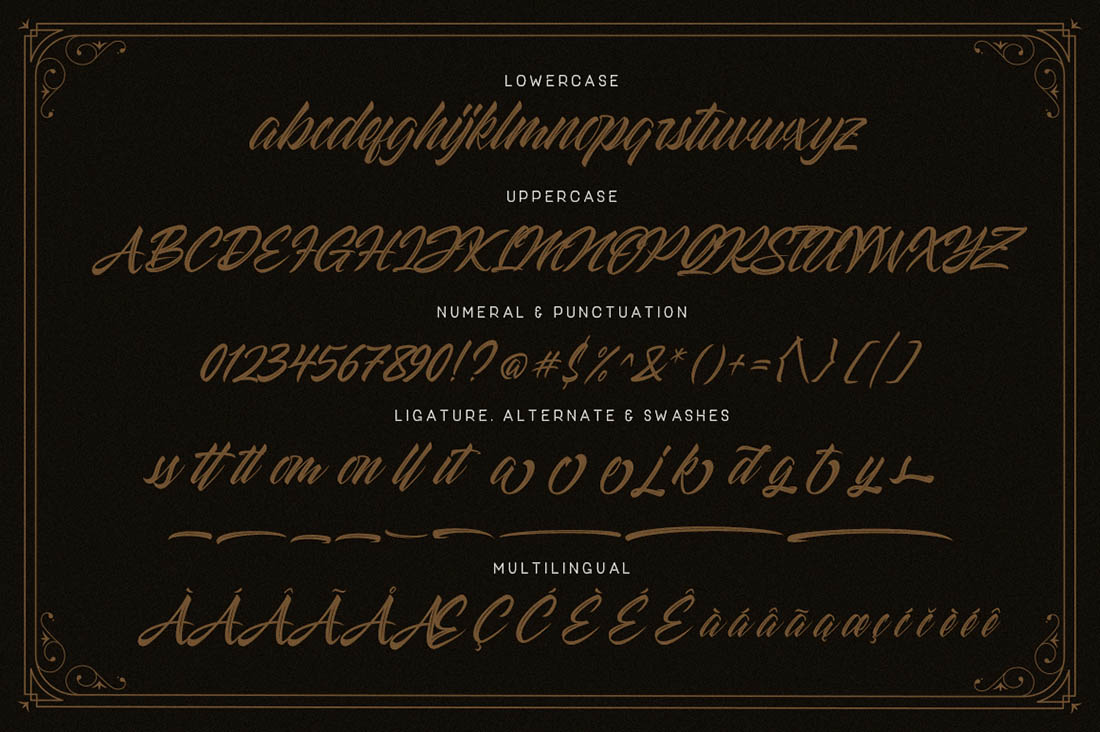 LOWERCASE
abcdefghijklmnopqrstuvwxyz
UPPERCASE
ABCDEFGHIJKLMNOPQRSTUVWXYZ
NUMERAL & PUNCTUATION
01234567890!?@#$%^&*()+={\}[/]
LIGATURE. ALTERNATE & SWASHES
ss tt tl om on ll it
MULTILINGUAL
ÀÁÂÃÅÆÇĆÈÉÊàáâãąæçćčèéê